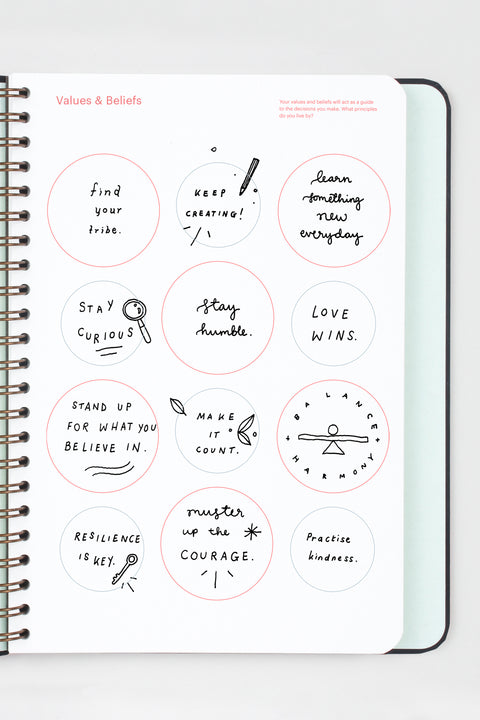 Values & Beliefs
Your values and beliefs will act as a guide
to the decisions you make. What principles
do you live by?
find
your
tribe.
KEEP
CREATING!
learn
something
new
everyday
STAY
CURIOUS
stay
humble.
LOVE
WINS.
STAND UP
FOR WHAT YOU
BELIEVE IN.
MAKE
IT
COUNT.
BALANCE
HARMONY
RESILIENCE
IS KEY.
muster
up the
COURAGE.
Practise
kindness.